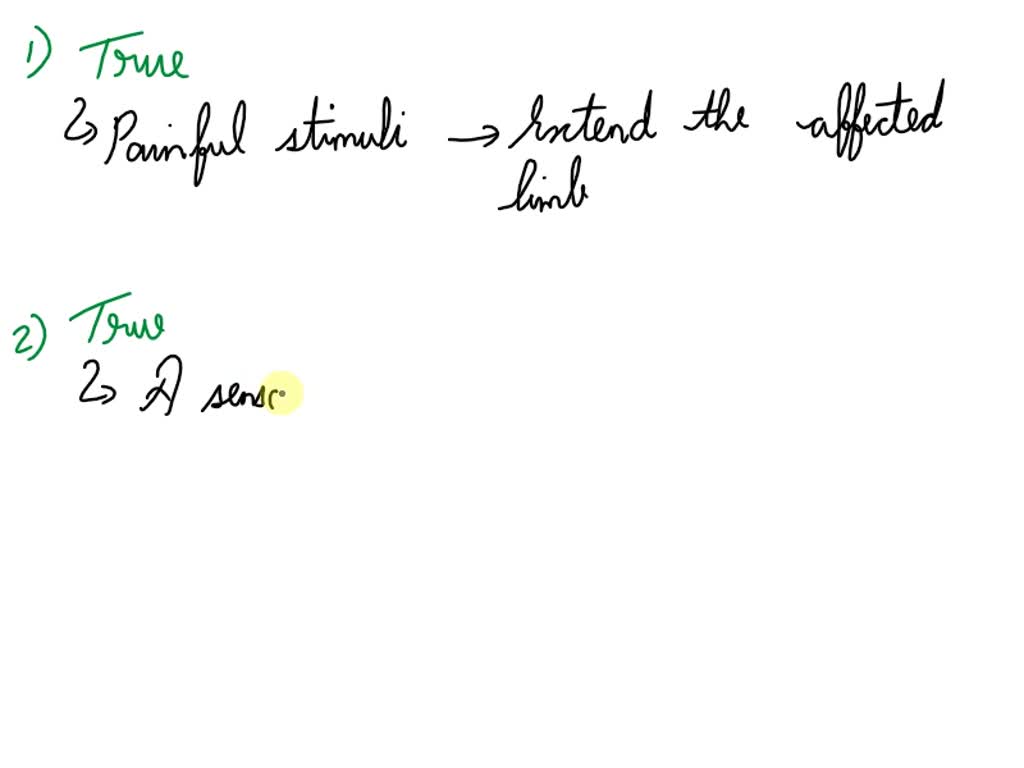 1) True
↳ Painful stimuli → Extend the affected
limb
2) True
↳ A senso